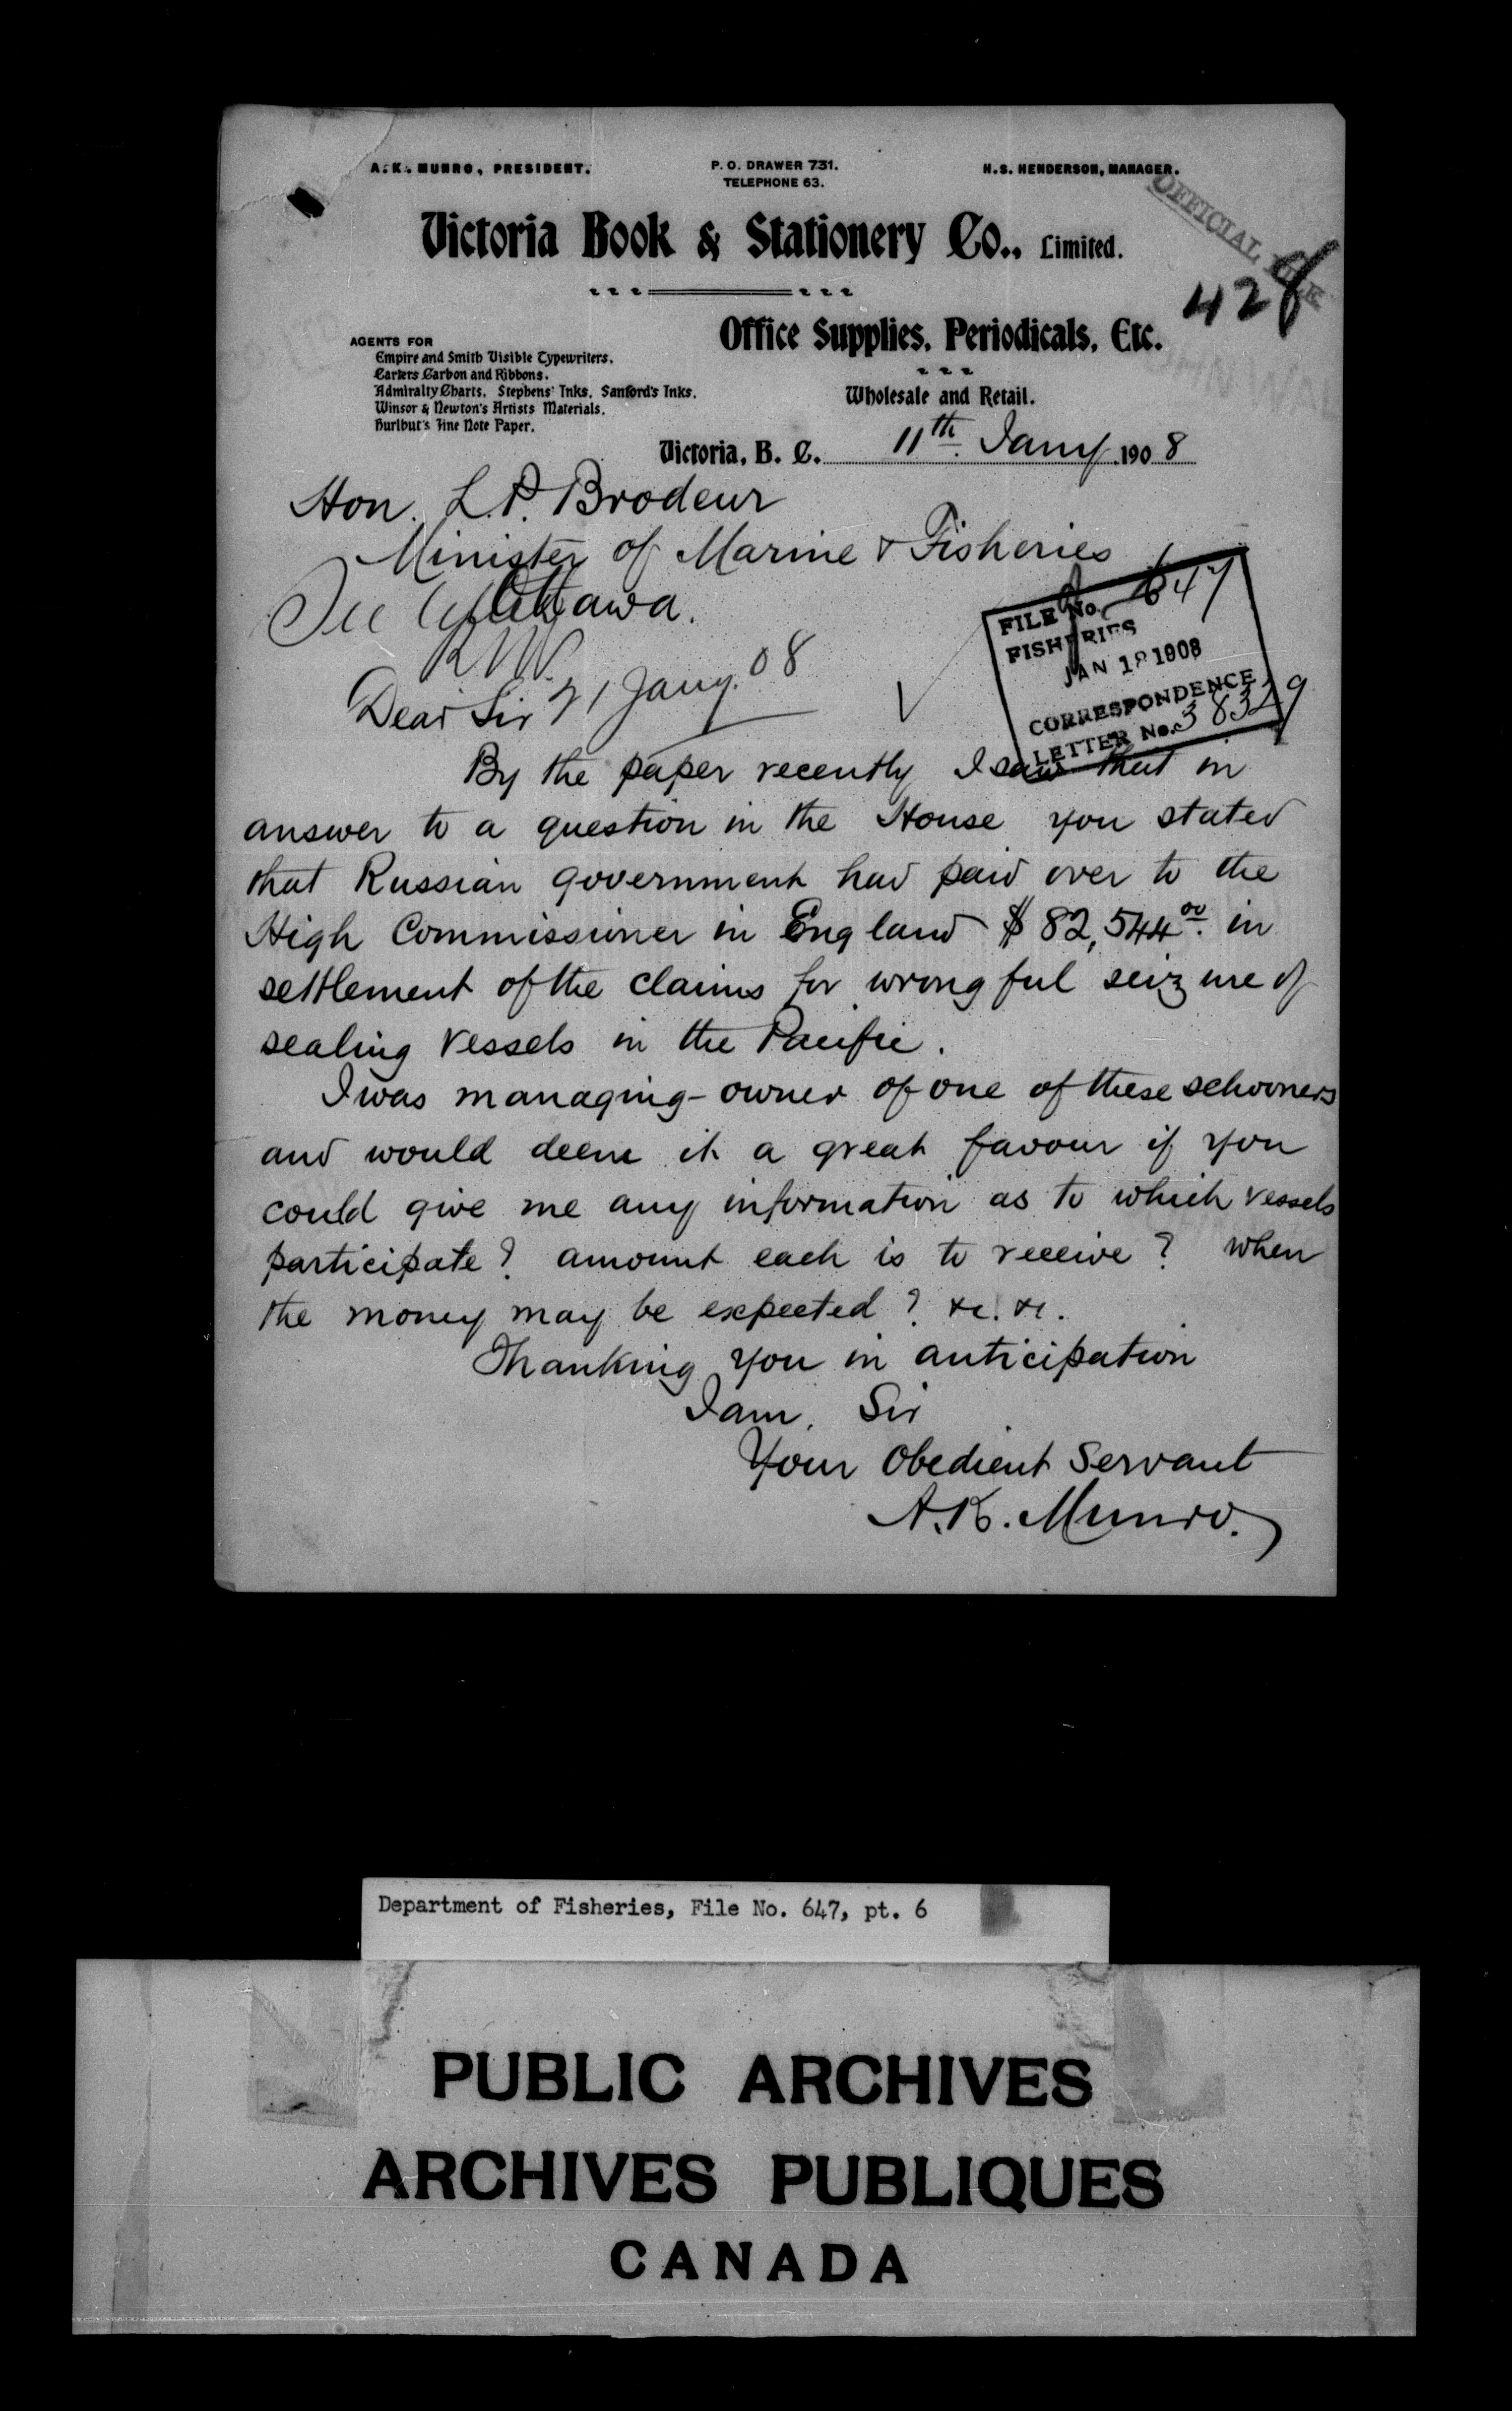 A. K. MUNRO, PRESIDENT.
P. O. DRAWER 731.
TELEPHONE 63.
H. S. HENDERSON, MANAGER.
OFFICIAL FILE
Victoria Book & Stationery Co., Limited.
428
Office Supplies, Periodicals, Etc.
Wholesale and Retail.
AGENTS FOR
Empire and Smith Visible Typewriters.
Carters Carbon and Ribbons.
Admiralty Charts. Stephens' Inks. Sanford's Inks.
Winsor & Newton's Artists Materials.
Hurlbut's Fine Note Paper.
Victoria, B. C. 11th Jany 1908
Hon. L.P. Brodeur
Minister of Marine & Fisheries
Ottawa.
21 Jany. 08
FILE No. 647
FISHERIES
JAN 18 1908
CORRESPONDENCE
LETTER No. 38329
Dear Sir
By the paper recently I saw that in
answer to a question in the House you stated
that Russian government had paid over to the
High Commissioner in England $82,544.00 in
settlement of the claims for wrongful seizure of
sealing vessels in the Pacific.
I was managing-owner of one of these schooners
and would deem it a great favour if you
could give me any information as to which vessels
participate? amount each is to receive? when
the money may be expected? &c. &c.
Thanking you in anticipation
I am, Sir
Your Obedient Servant
A.K. Munro.
Department of Fisheries, File No. 647, pt. 6
PUBLIC ARCHIVES
ARCHIVES PUBLIQUES
CANADA